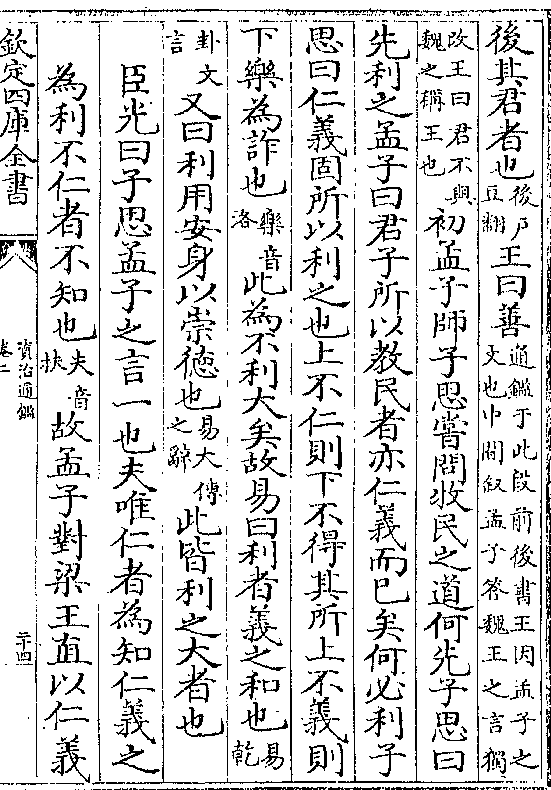 後其君者也後戶豆翻王曰善通鑑于此段前後書王因孟子之文也中間叙孟子答魏王之言獨
改王曰君不與魏之稱王也初孟子師子思嘗問牧民之道何先子思曰
先利之孟子曰君子所以教民者亦仁義而已矣何必利子
思曰仁義固所以利之也上不仁則下不得其所上不義則
下樂為詐也樂音洛此為不利大矣故易曰利者義之和也易乾
卦文言又曰利用安身以崇德也易大傳之辭此皆利之大者也
臣光曰子思孟子之言一也夫唯仁者為知仁義之
為利不仁者不知也夫音扶故孟子對梁王直以仁義
欽定四庫全書
資治通鑑
卷二
二十四